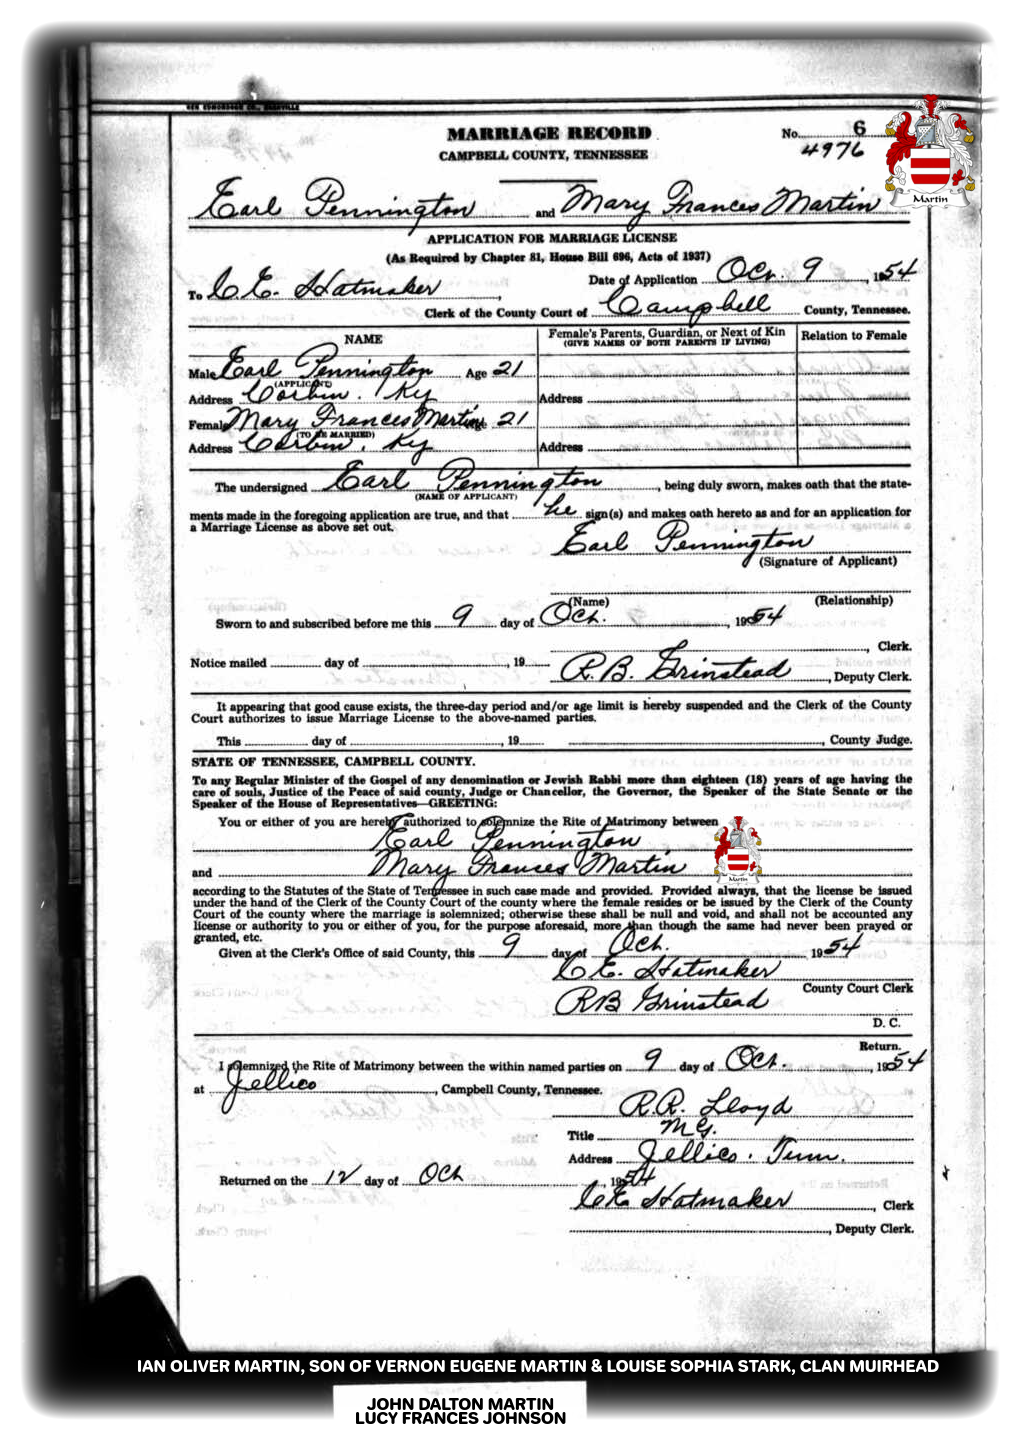 KEN EDMONDSON CO., NASHVILLE
MARRIAGE RECORD
CAMPBELL COUNTY, TENNESSEE
No. 6
4976
Martin
Earl Pennington and Mary Frances Martin
APPLICATION FOR MARRIAGE LICENSE
(As Required by Chapter 81, House Bill 696, Acts of 1937)
Date of Application Oct. 9, 1954
To C.E. Hatmaker,
Clerk of the County Court of Campbell County, Tennessee.
NAME
Female's Parents, Guardian, or Next of Kin
(GIVE NAMES OF BOTH PARENTS IF LIVING)
Relation to Female
Male Earl Pennington Age 21
(APPLICANT)
Address Corbin. Ky Address
Female Mary Frances Martin Age 21
(TO BE MARRIED)
Address Corbin, Ky Address
The undersigned Earl Pennington, being duly sworn, makes oath that the state-
(NAME OF APPLICANT)
ments made in the foregoing application are true, and that he sign(s) and makes oath hereto as and for an application for
a Marriage License as above set out.
Earl Pennington
(Signature of Applicant)
(Name) (Relationship)
Sworn to and subscribed before me this 9 day of Oct., 1954
, Clerk.
Notice mailed day of , 19
R.B. Grinstead, Deputy Clerk.
It appearing that good cause exists, the three-day period and/or age limit is hereby suspended and the Clerk of the County
Court authorizes to issue Marriage License to the above-named parties.
This day of , 19 , County Judge.
STATE OF TENNESSEE, CAMPBELL COUNTY.
To any Regular Minister of the Gospel of any denomination or Jewish Rabbi more than eighteen (18) years of age having the
care of souls, Justice of the Peace of said county, Judge or Chancellor, the Governor, the Speaker of the State Senate or the
Speaker of the House of Representatives—GREETING:
You or either of you are hereby authorized to solemnize the Rite of Matrimony between
Earl Pennington
and Mary Frances Martin
Martin
according to the Statutes of the State of Tennessee in such case made and provided. Provided always, that the license be issued
under the hand of the Clerk of the County Court of the county where the female resides or be issued by the Clerk of the County
Court of the county where the marriage is solemnized; otherwise these shall be null and void, and shall not be accounted any
license or authority to you or either of you, for the purpose aforesaid, more than though the same had never been prayed or
granted, etc.
Given at the Clerk's Office of said County, this 9 day of Oct. 1954
C.E. Hatmaker
County Court Clerk
RB Grinstead
D. C.
Return.
I solemnized the Rite of Matrimony between the within named parties on 9 day of Oct., 1954
at Jellico, Campbell County, Tennessee.
R.R. Lloyd
Title M.G.
Address Jellico. Tenn.
Returned on the 12 day of Oct, 1954
CE Hatmaker, Clerk
, Deputy Clerk.
IAN OLIVER MARTIN, SON OF VERNON EUGENE MARTIN & LOUISE SOPHIA STARK, CLAN MUIRHEAD
JOHN DALTON MARTIN
LUCY FRANCES JOHNSON